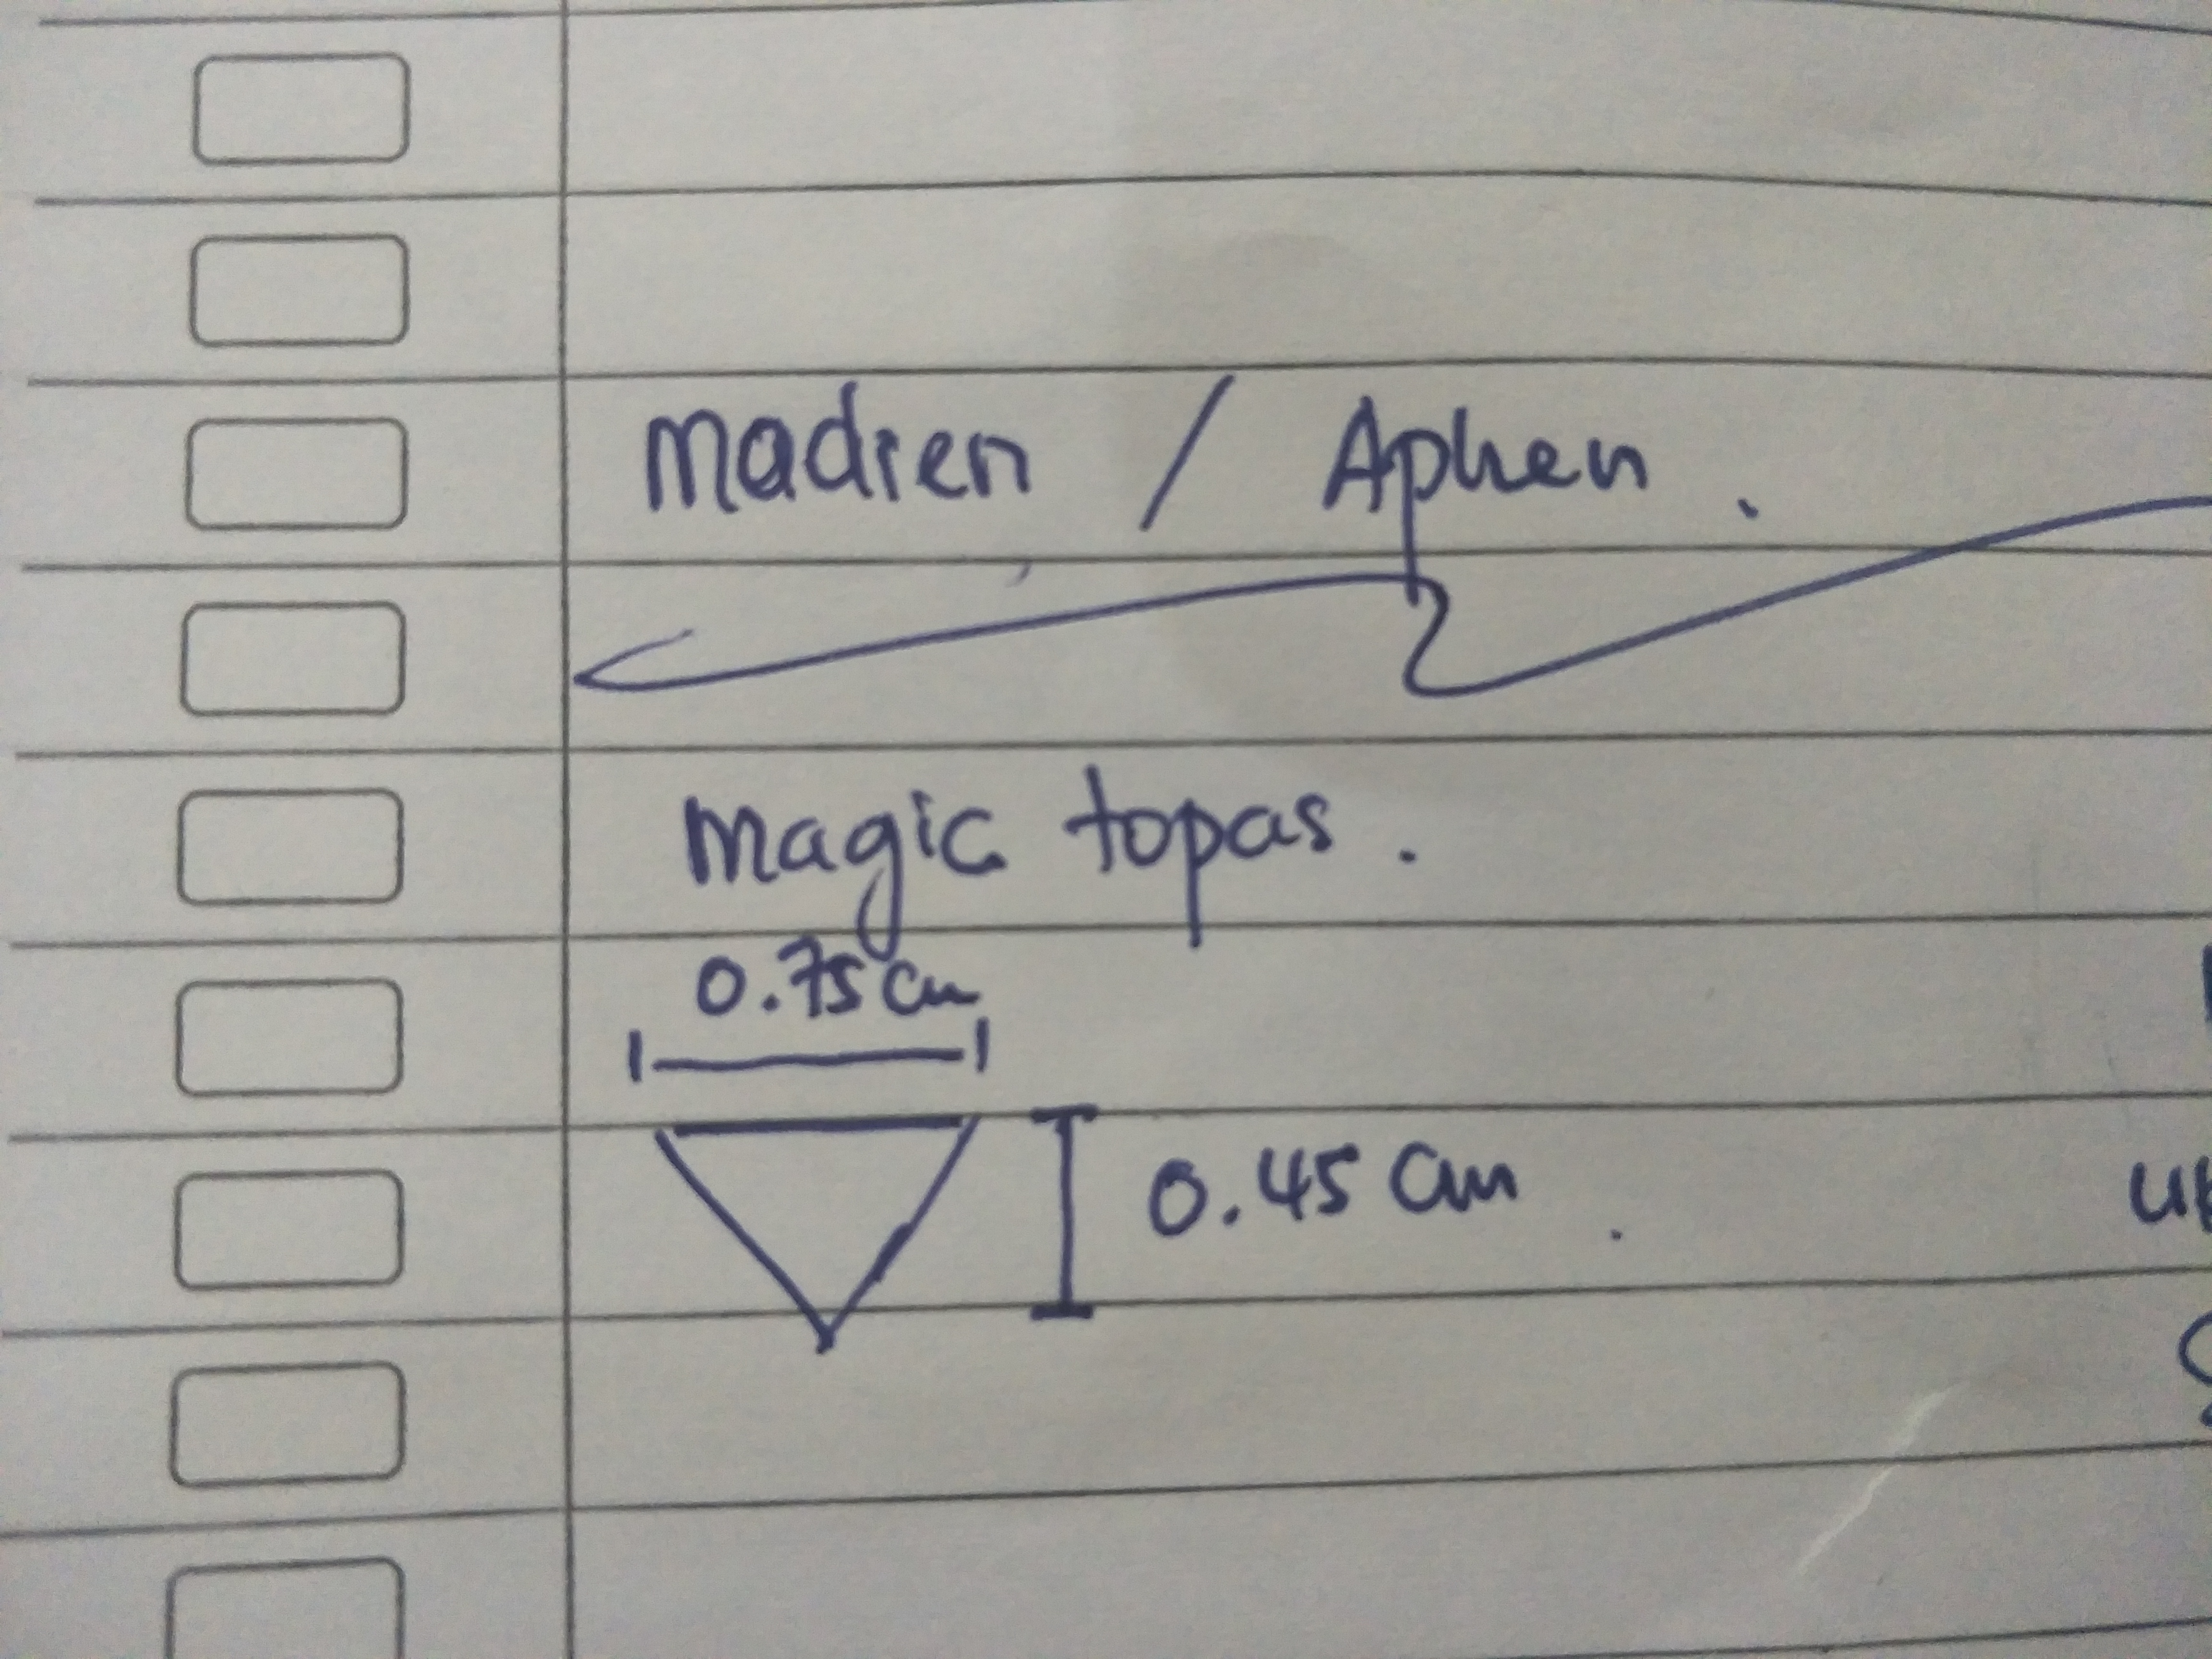 Madien / Aphen.
Magic topas.
0.75 cm
0.45 cm